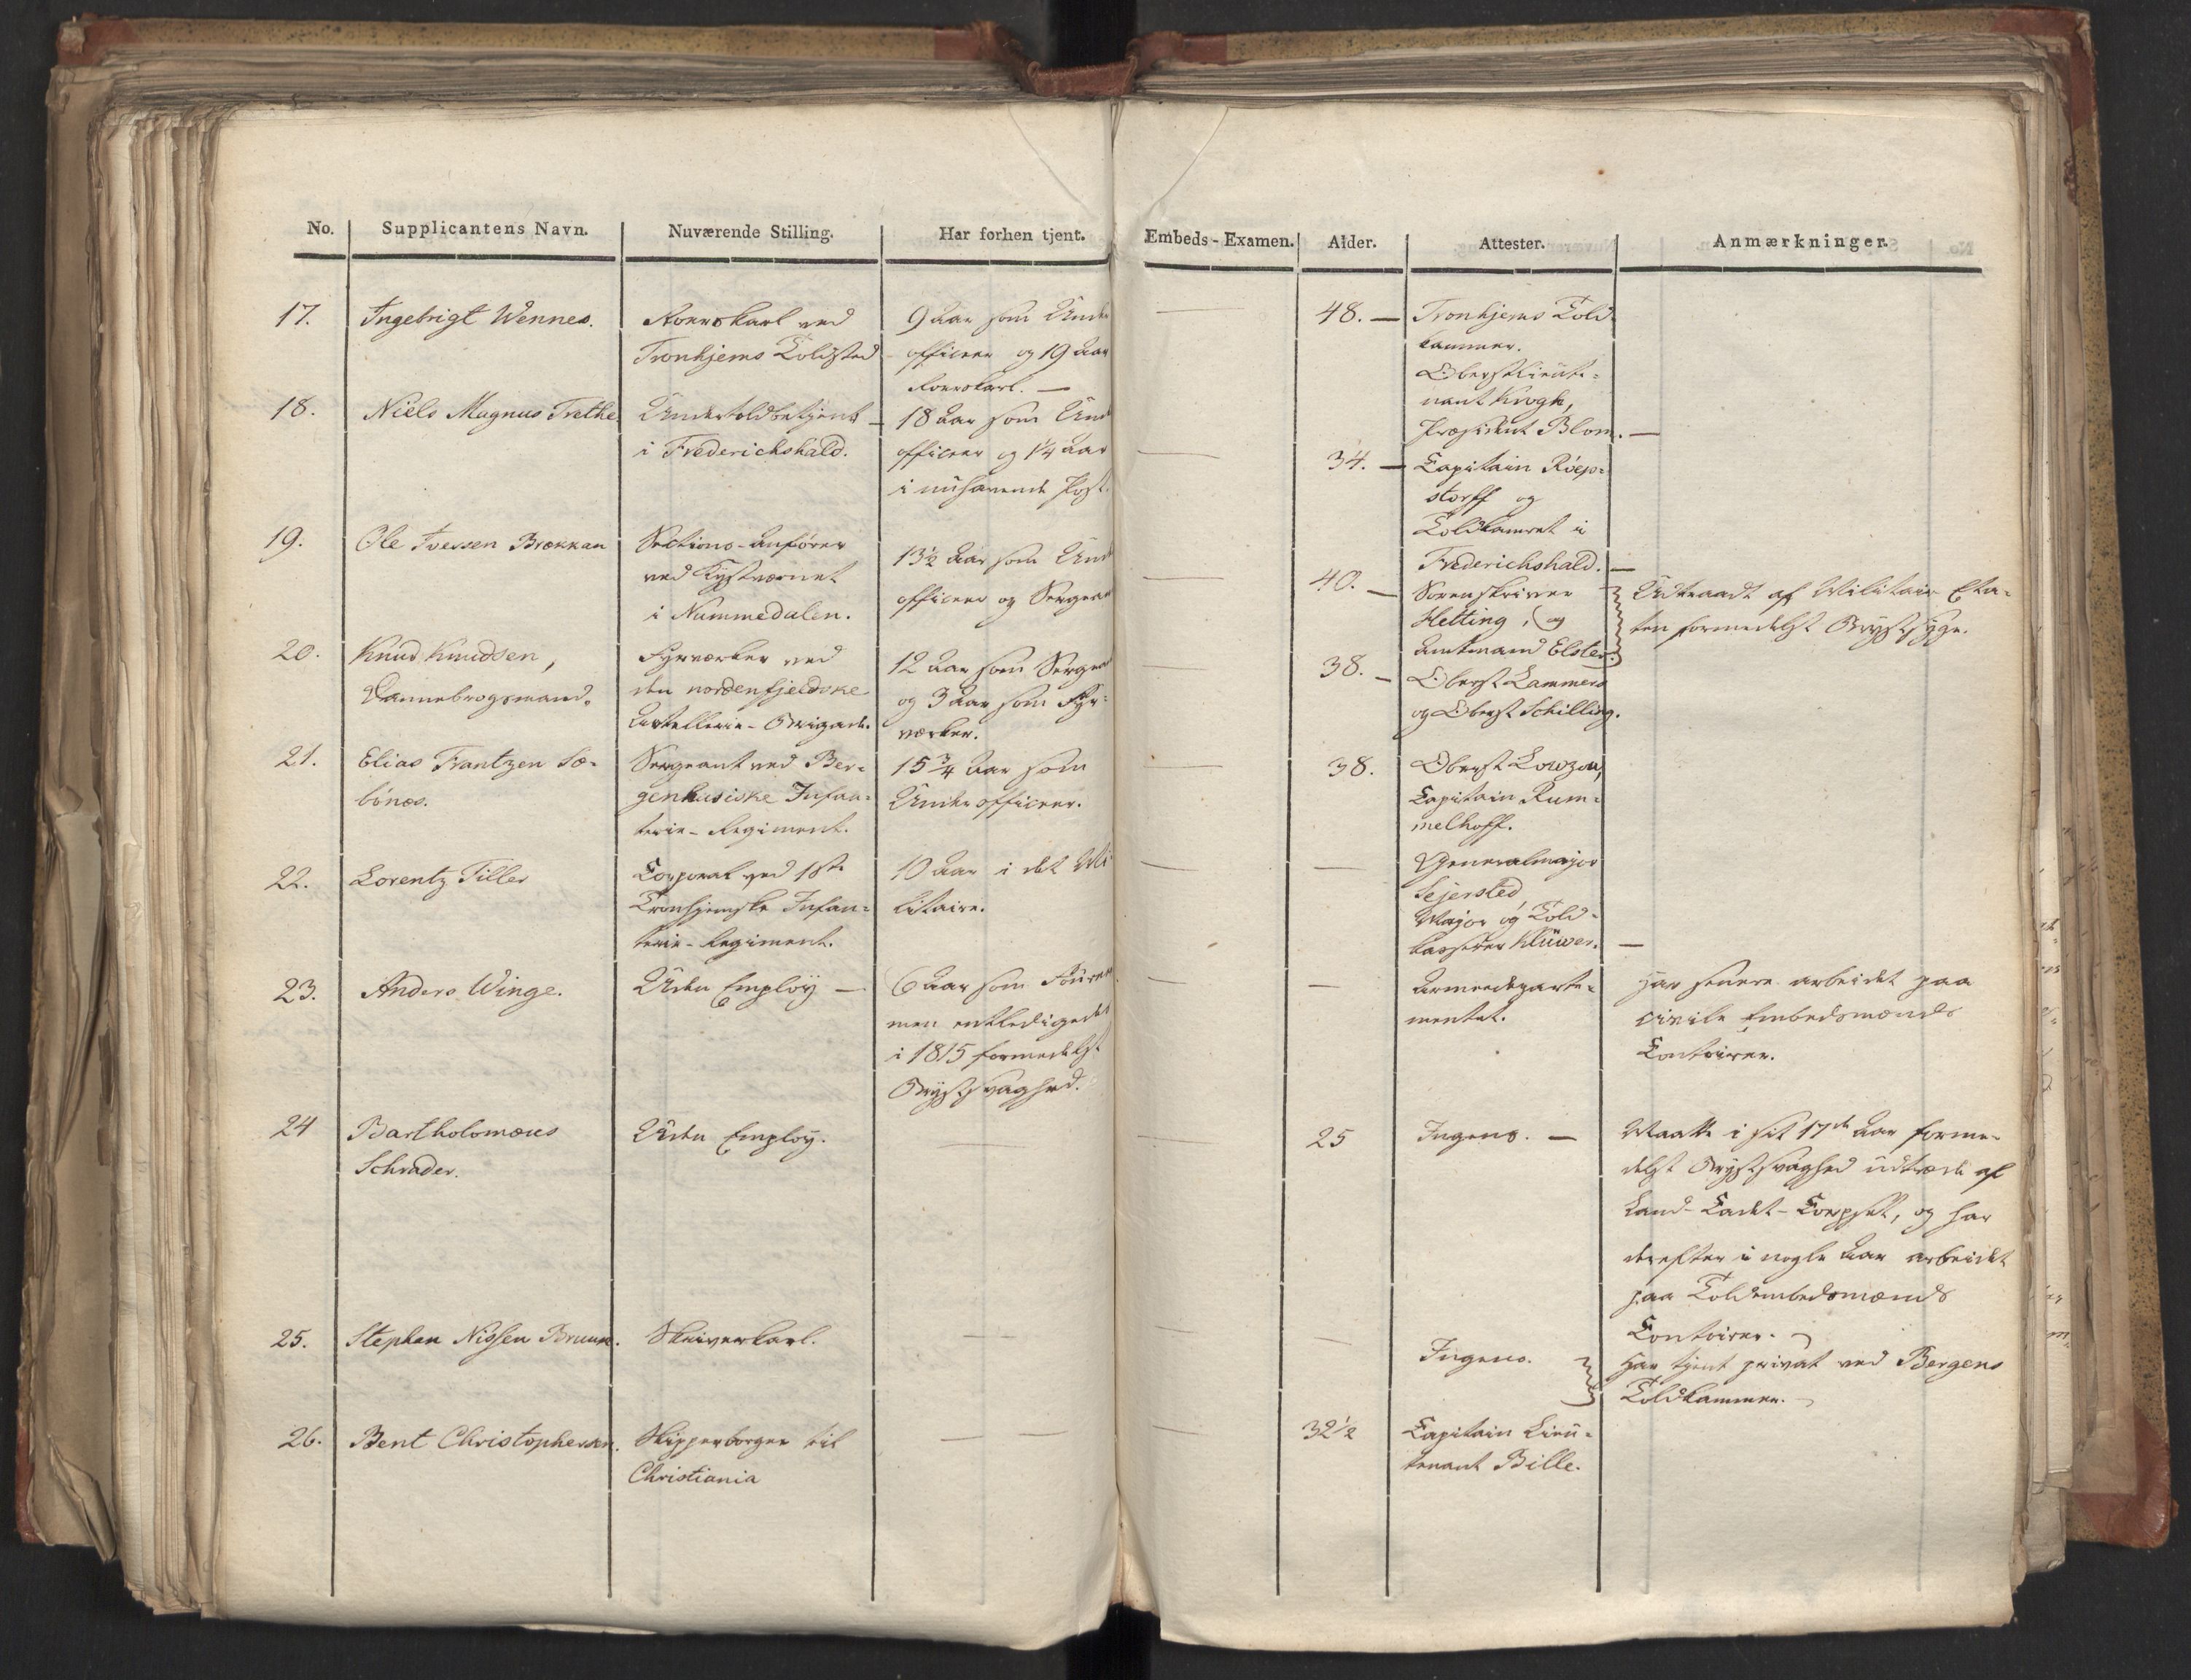 No.
Supplicantens Navn.
Nuværende Stilling.
Har forhen tjent.
Embeds-Examen.
Alder.
Attester.
Anmærkninger.
17.
Ingebrigt Wennes.
Roerskarl ved
Tronhjems Toldsted
9 Aar som Under
officeer og 19 Aar
Roerskarl. —
—
48. —
Tronhjems Told
kammer.
Oberstlieute-
nant Krogh,
Præsident Blom. —
18.
Niels Magnus Trethe
Undertoldbetjent
i Frederichshald.
18 Aar som Und
officeer og 1¼ Aar
i nuhavende Post.
—
34. —
Capitain Röep-
storff og
Toldkamret i
Frederichshald. —
19.
Ole Iversen Brækkan
Sections-Anfører
ved Kystværnet
i Nummedalen.
13½ Aar som Und
officeer og Sergean
—
40. —
Sorenskriver
Hetting, og
Amtmand Elster.
Udtraadt af Militair Eta-
ten formedelst Brystsyge.
20.
Knud Knudsen,
Dannebrogsmand.
Fyrværker ved
den nordenfjeldske
Artellerie-Brigade.
12 Aar som Sergean
og 3 Aar som Fyr-
værker.
—
38. —
Oberst Lammers
og Oberst Schilling.
21.
Elias Frantzen Sæ-
bönes.
Sergeant ved Ber-
genhusiske Infan-
terie-Regiment.
15¾ Aar som
Underofficeer.
—
38.
Oberst Lowzow,
Capitain Rum-
melhoff.
22.
Lorentz Tiller
Corporal ved 1ste
Tronhjemske Infan-
terie-Regiment.
10 Aar i det Mi
litaire.
—
—
Generalmajor
Sejersted,
Major og Told-
kasserer Klüwer. —
23.
Anders Winge.
Uden Employ —
6 Aar som Foureer
men entledigedes
i 1815 formedelst
Brystsvaghed.
—
—
Armeedeparte-
mentet.
Har senere arbeidet paa
civile Embedsmænds
Contoirer.
24
Bartholomæus
Schrader.
Uden Employ.
—
—
25
Ingens. —
Maatte i sit 17de Aar forme-
delst Brystsvaghed udtræde af
Land-Cadet-Corpset, og har
derefter i nogle Aar arbeidet
paa Toldembedsmænds
Contoirer. —
25.
Stephen Nissen Bruun.
Skriverkarl.
— —
—
—
Ingens.
Har tjent privat ved Bergens
Toldkammer. —
26.
Bent Christophersen.
Skipperborger til
Christiania
— —
—
32½
Capitain Lieu-
tenant Bille.